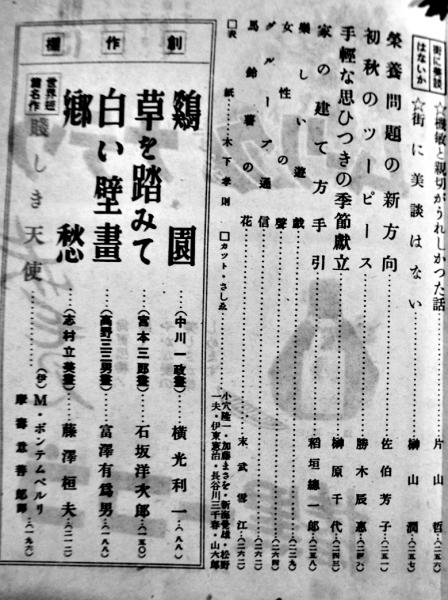 街に美談はないか
機敏と親切がうれしかつた話……片山哲…(二五六)
☆街に美談はない……榊山潤…(二五七)
栄養問題の新方向……佐伯芳子…(二五一)
初秋のツーピース……勝木辰惠…(二四〇)
手軽な思ひつきの季節献立……榊原千代…(二四三)
家の建て方手引……稲垣總一郎…(二五八)
樂しい遊戯……(二三九)
女性の聲……(二六四)
グループ通信……(二六二)
馬鈴薯の花……末武雪江…(二六二)
□表紙……木下孝則
□カット・さしゑ
小穴隆一・加藤まさを・新海覺雄・松野一夫・伊東憲治・長谷川三千春・山六郎
創作欄
鷄園（中川一政畫）…横光利一…(八八)
草を踏みて（宮本三郎畫）…石坂洋次郎…(一五〇)
白い壁畫（高野三三男畫）…富澤有爲男…(一八八)
郷愁（志村立美畫）…藤澤桓夫…(二一二)
世界短篇名作
賤しき天使……（伊）M・ボンテムペルリ
摩壽意善郎譯…(一九六)